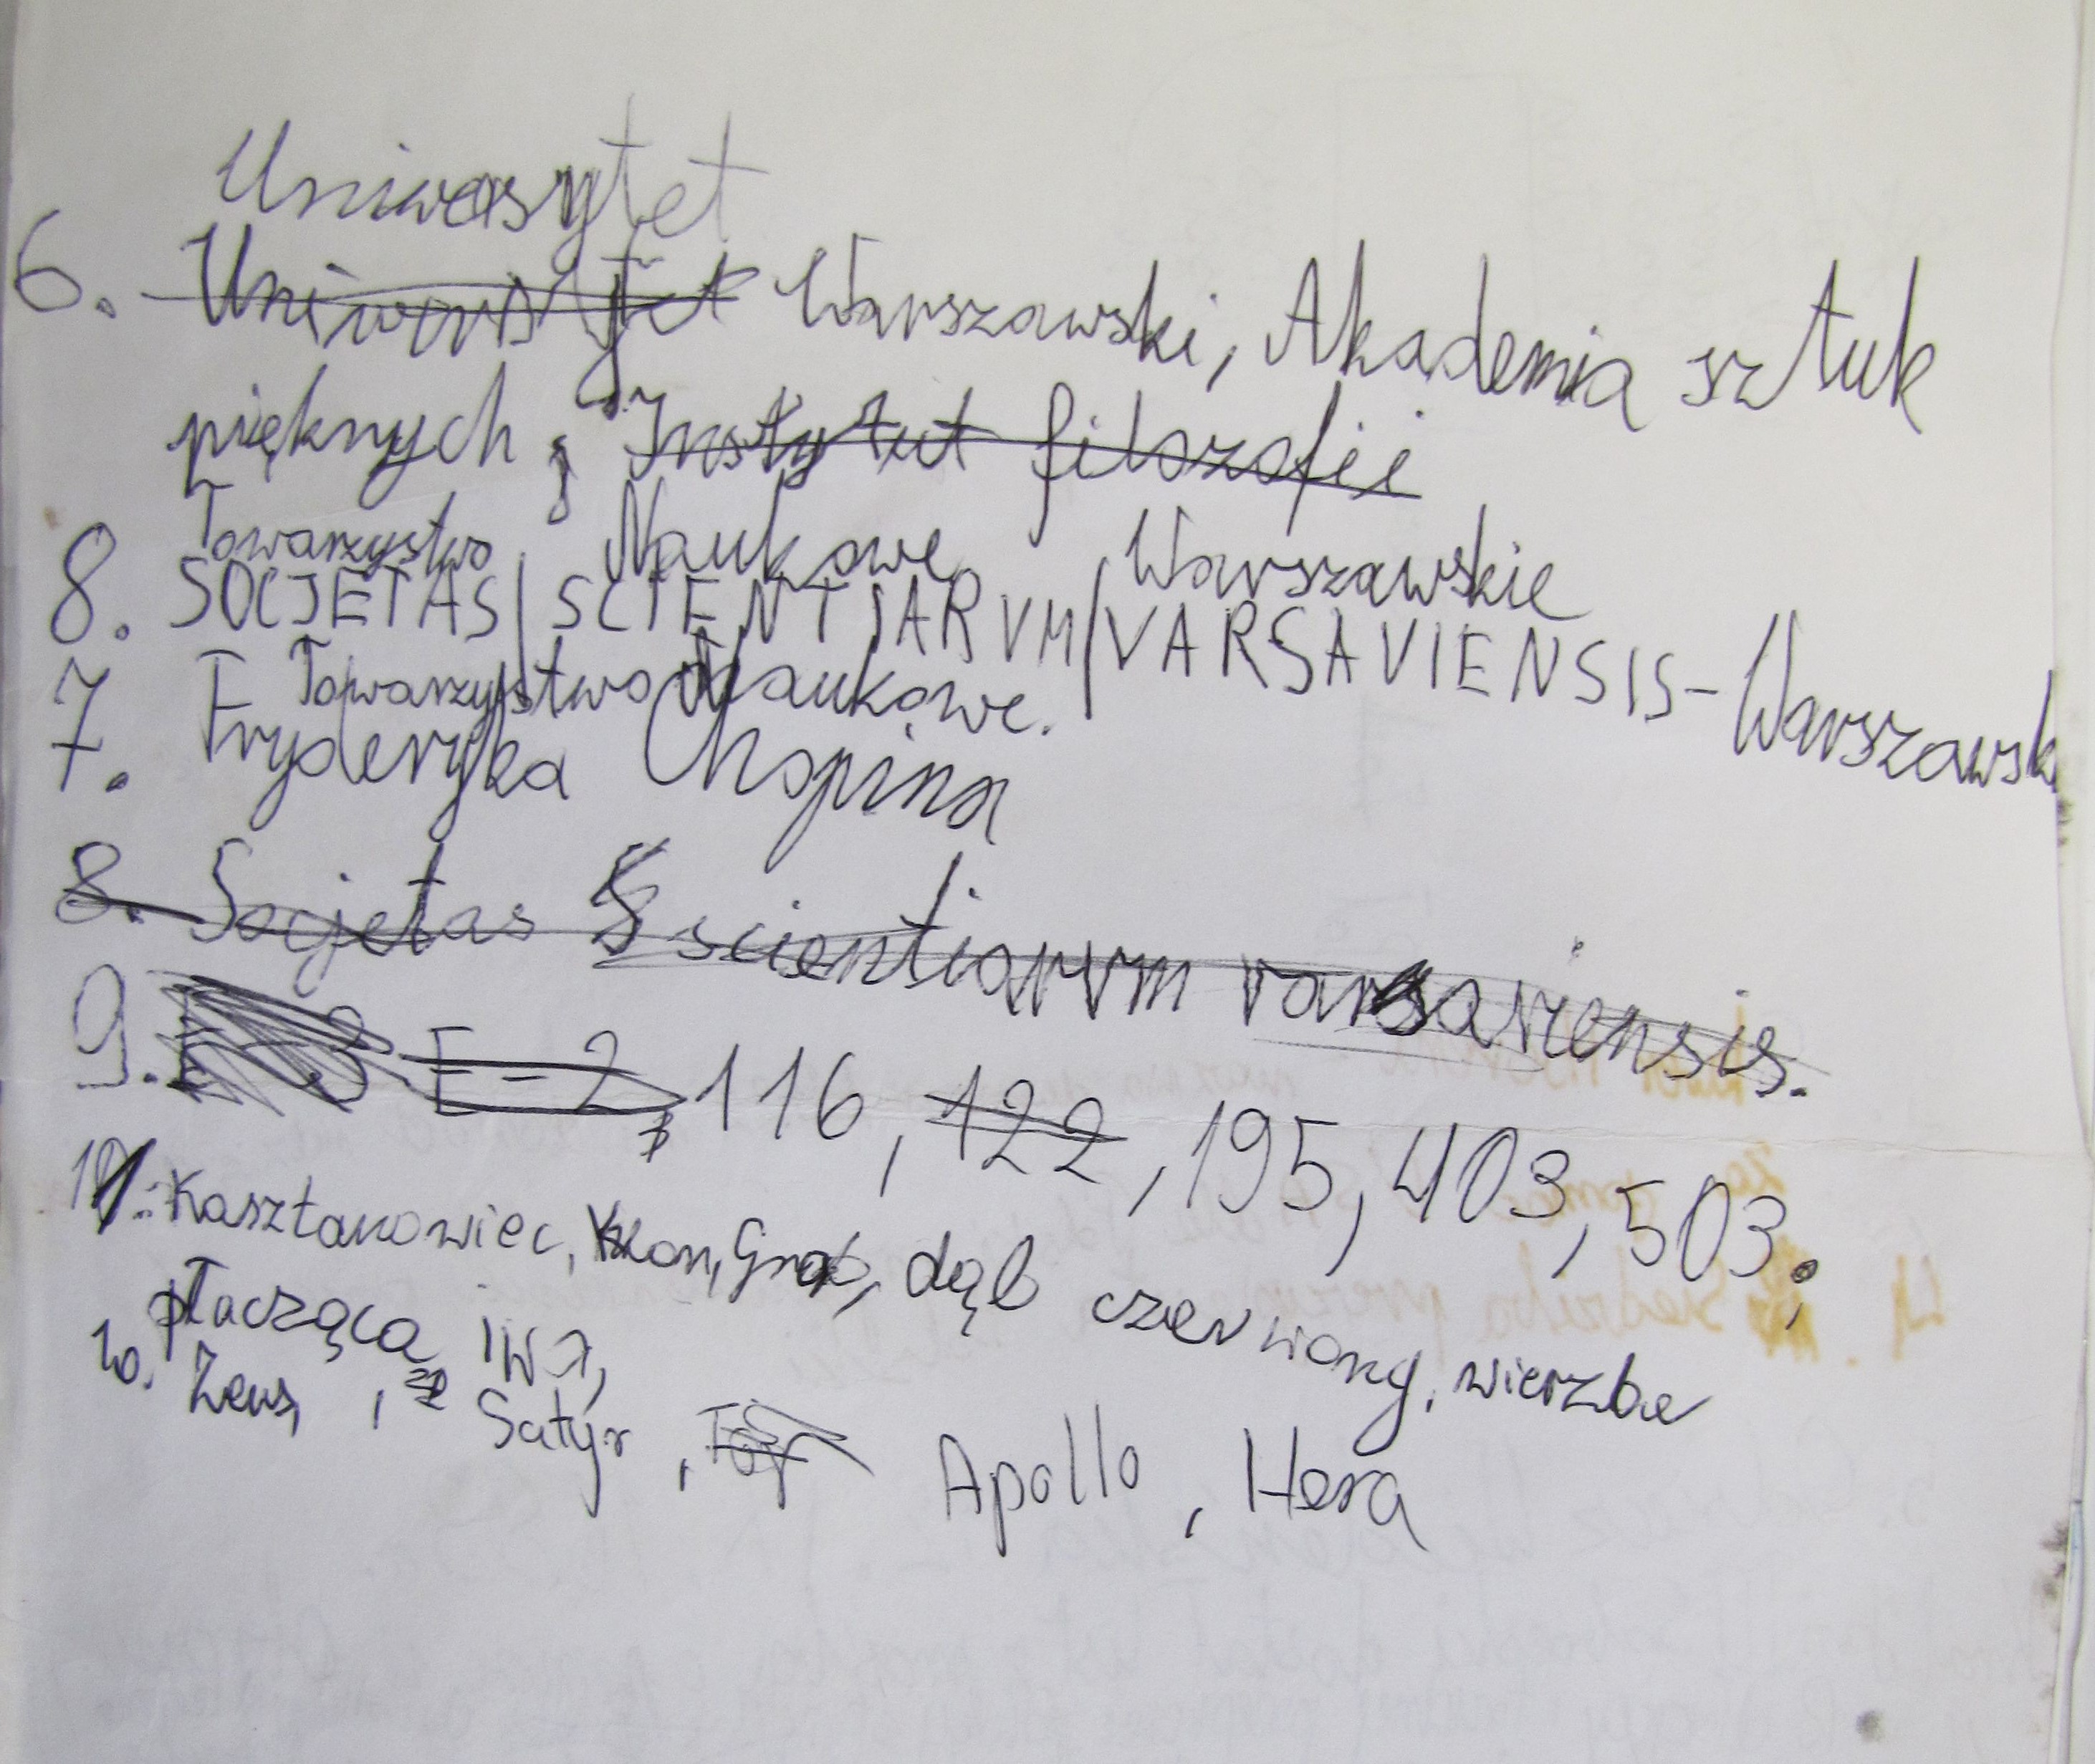 Uniwersytet
6. Uniwersytet Warszawski, Akademia sztuk
pięknych, Instytut filozofii
Towarzystwo Naukowe Warszawskie
8. SOCJETAS/SCIENTJARVM/VARSAVIENSIS-Warszawski
Towarzystwo Naukowe.
7. Fryderyka Chopina
8. Socjetas scientiarvm varsaviensis.
9. E-3 E-2, 116, 122, 195, 403, 503,
11. Kasztanowiec, Klon, Grab, dąb czerwony, wierzba
płacząca, iwa,
10. Zeus, Satyr, Apollo, Hera